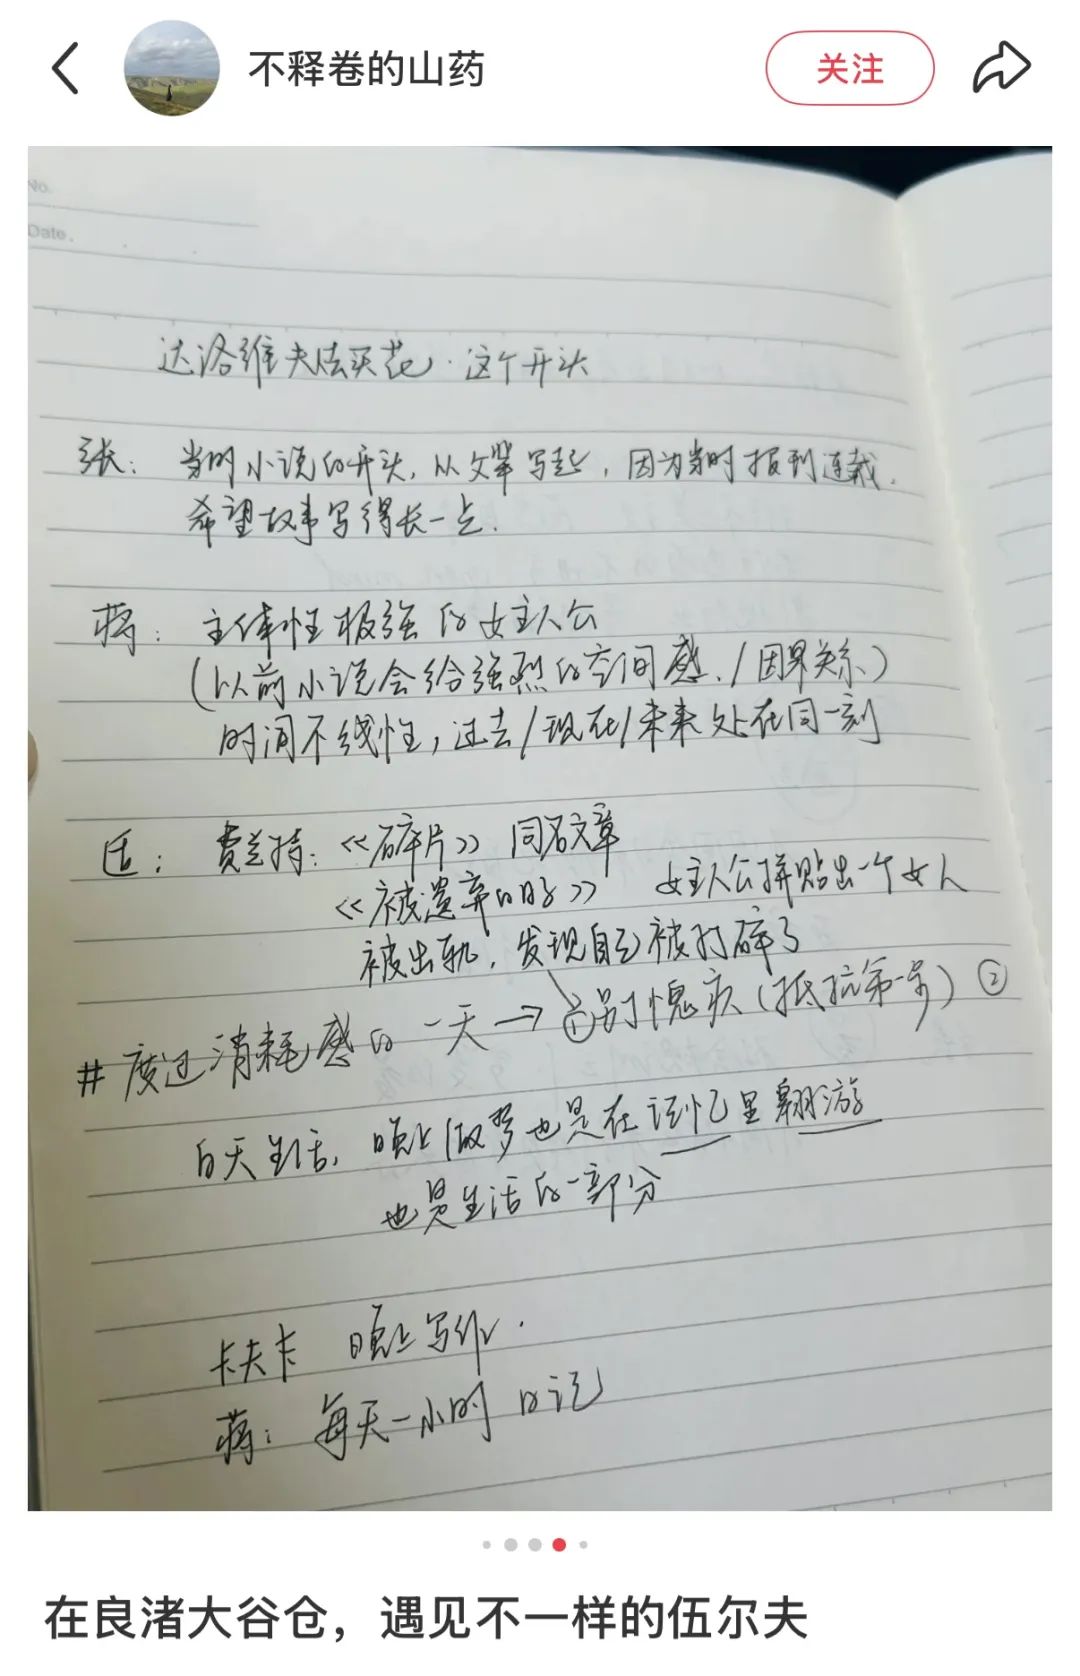 不释卷的山药
关注
No.
Date.
达洛维夫法买花·这个开头
张: 当时小说的开头,从父辈写起,因为当时报刊连载.
希望故事写得长一点.
蒋: 主体性极强的女主人公
(以前小说会给强烈的空间感./因果关系)
时间不线性,过去/现在/未来处在同一刻
伍: 费兰特:《碎片》同名文章
《被遗弃的日子》 女主人公拼贴出一个女人
被出轨,发现自己被打碎了
#度过消耗感的一天→①别愧疚(抵抗第一步)②
白天生活,晚上做梦也是在记忆里翱游
也是生活的一部分
卡夫卡 晚上写作.
蒋: 每天一小时 日记
在良渚大谷仓，遇见不一样的伍尔夫